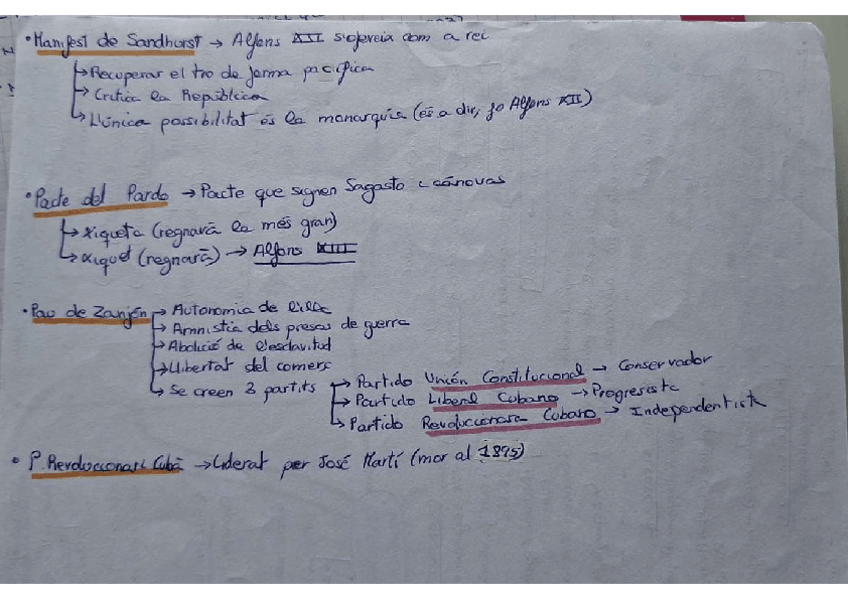 • Manifest de Sandhurst → Alfons XII s'ofereix com a rei
↳ Recuperar el tro de forma pacífica
↳ Critica la República
↳ L'única possibilitat és la monarquia (és a dir, jo Alfons XII)
• Pacte del Pardo → Pacte que signen Sagasta i Cánovas
↳ Xiqueta (regnarà la més gran)
↳ Xiquet (regnarà) → Alfons XIII
• Pau de Zanjón → Autonomia de l'illa
→ Amnistia dels presos de guerra
→ Abolició de l'esclavitud
→ Llibertat del comerç
↳ Se creen 3 partits → Partido Unión Constitucional → Conservador
→ Partido Liberal Cubano → Progresista
↳ Partido Revolucionara Cubano → Independentista
• P. Revolucionari Cubà → Liderat per José Martí (mor al 1895)